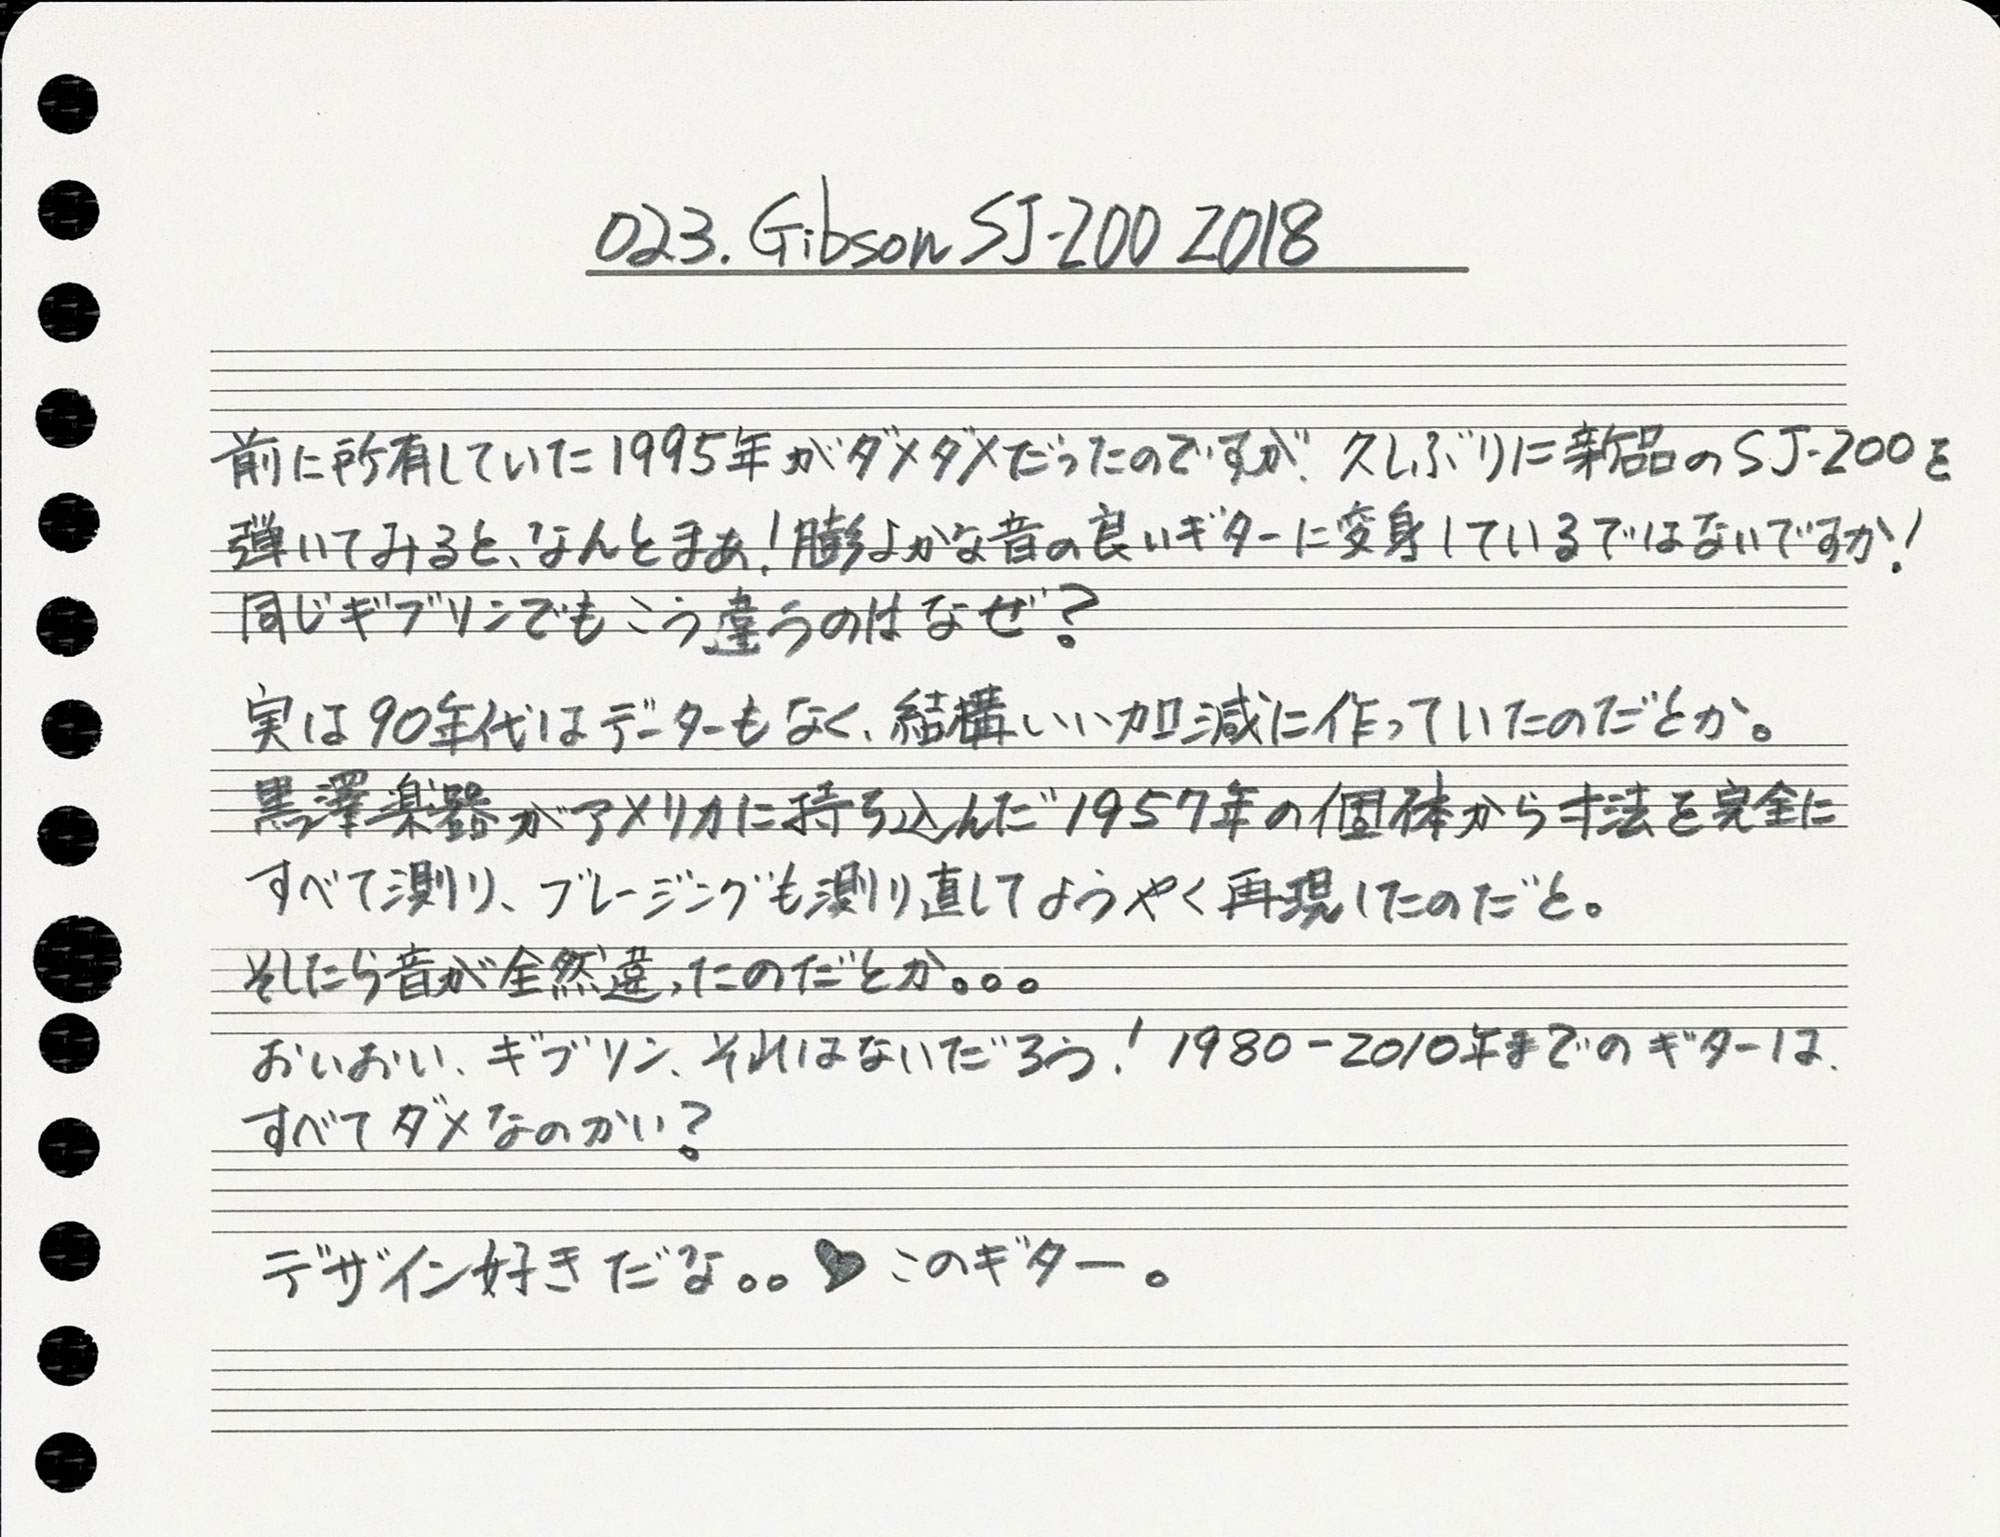 023. Gibson SJ-200 2018
前に所有していた1995年がダメダメだったのですが、久しぶりに新品のSJ-200を
弾いてみると、なんとまぁ!膨よかな音の良いギターに変身しているではないですか!
同じギブソンでもこう違うのはなぜ?
実は90年代はデーターもなく、結構いい加減に作っていたのだとか。
黒澤楽器がアメリカに持ち込んだ1957年の個体から寸法を完全に
すべて測り、ブレージングも測り直してようやく再現したのだと。
そしたら音が全然違ったのだとか。。。
おいおい、ギブソン、それはないだろう!1980-2010年までのギターは、
すべてダメなのかい?
デザイン好きだな。。♥このギター。